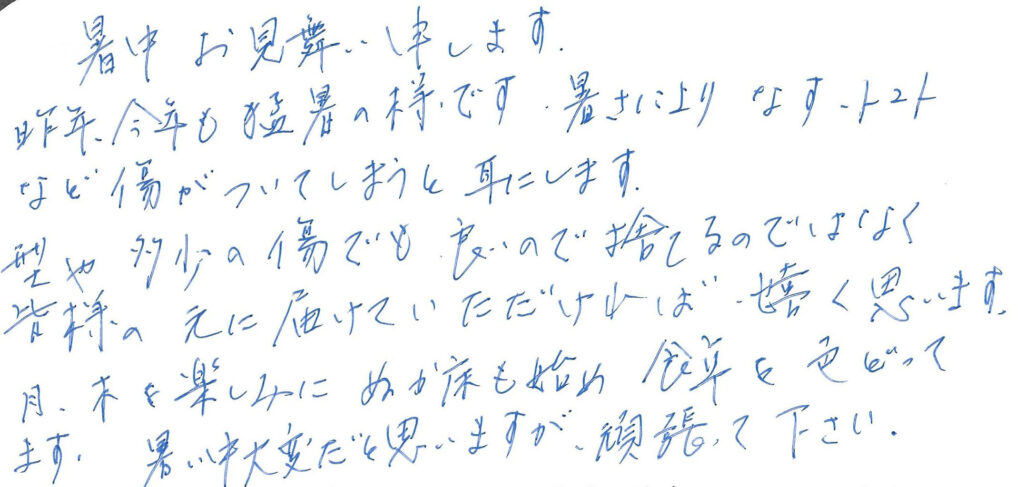 暑中お見舞い申します.
昨年、今年も猛暑の様です.暑さにより なす、トマト
など傷がついてしまうと耳にします.
型や 多少の傷でも 良いので捨てるのではなく
皆様の元に届けていただければ 嬉く思います.
月、木を楽しみに ぬか床も始め 食卓を色どって
ます. 暑い中大変だと思いますが、頑張って下さい.